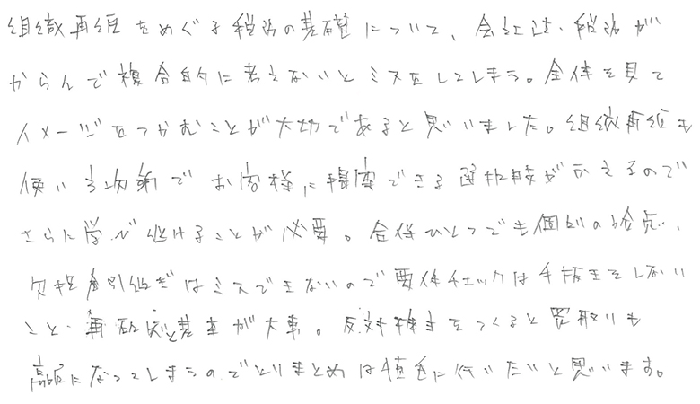 組織再編をめぐる税務の基礎について、会社法・税務が
からんで複合的に考えないとミスをしてしまう。全体を見て
イメージをつかむことが大切であると思いました。組織再編も
使い方次第でお客様に提案できる選択肢がふえるので
さらに学び続けることが必要。合併ひとつでも個別の論点、
欠損金引継ぎはミスできないので要件チェックは手抜きをしない
こと・再確認と基本が大事。反対株主をつくると買取りも
高額になってしまうのでとりまとめは慎重に行いたいと思います。